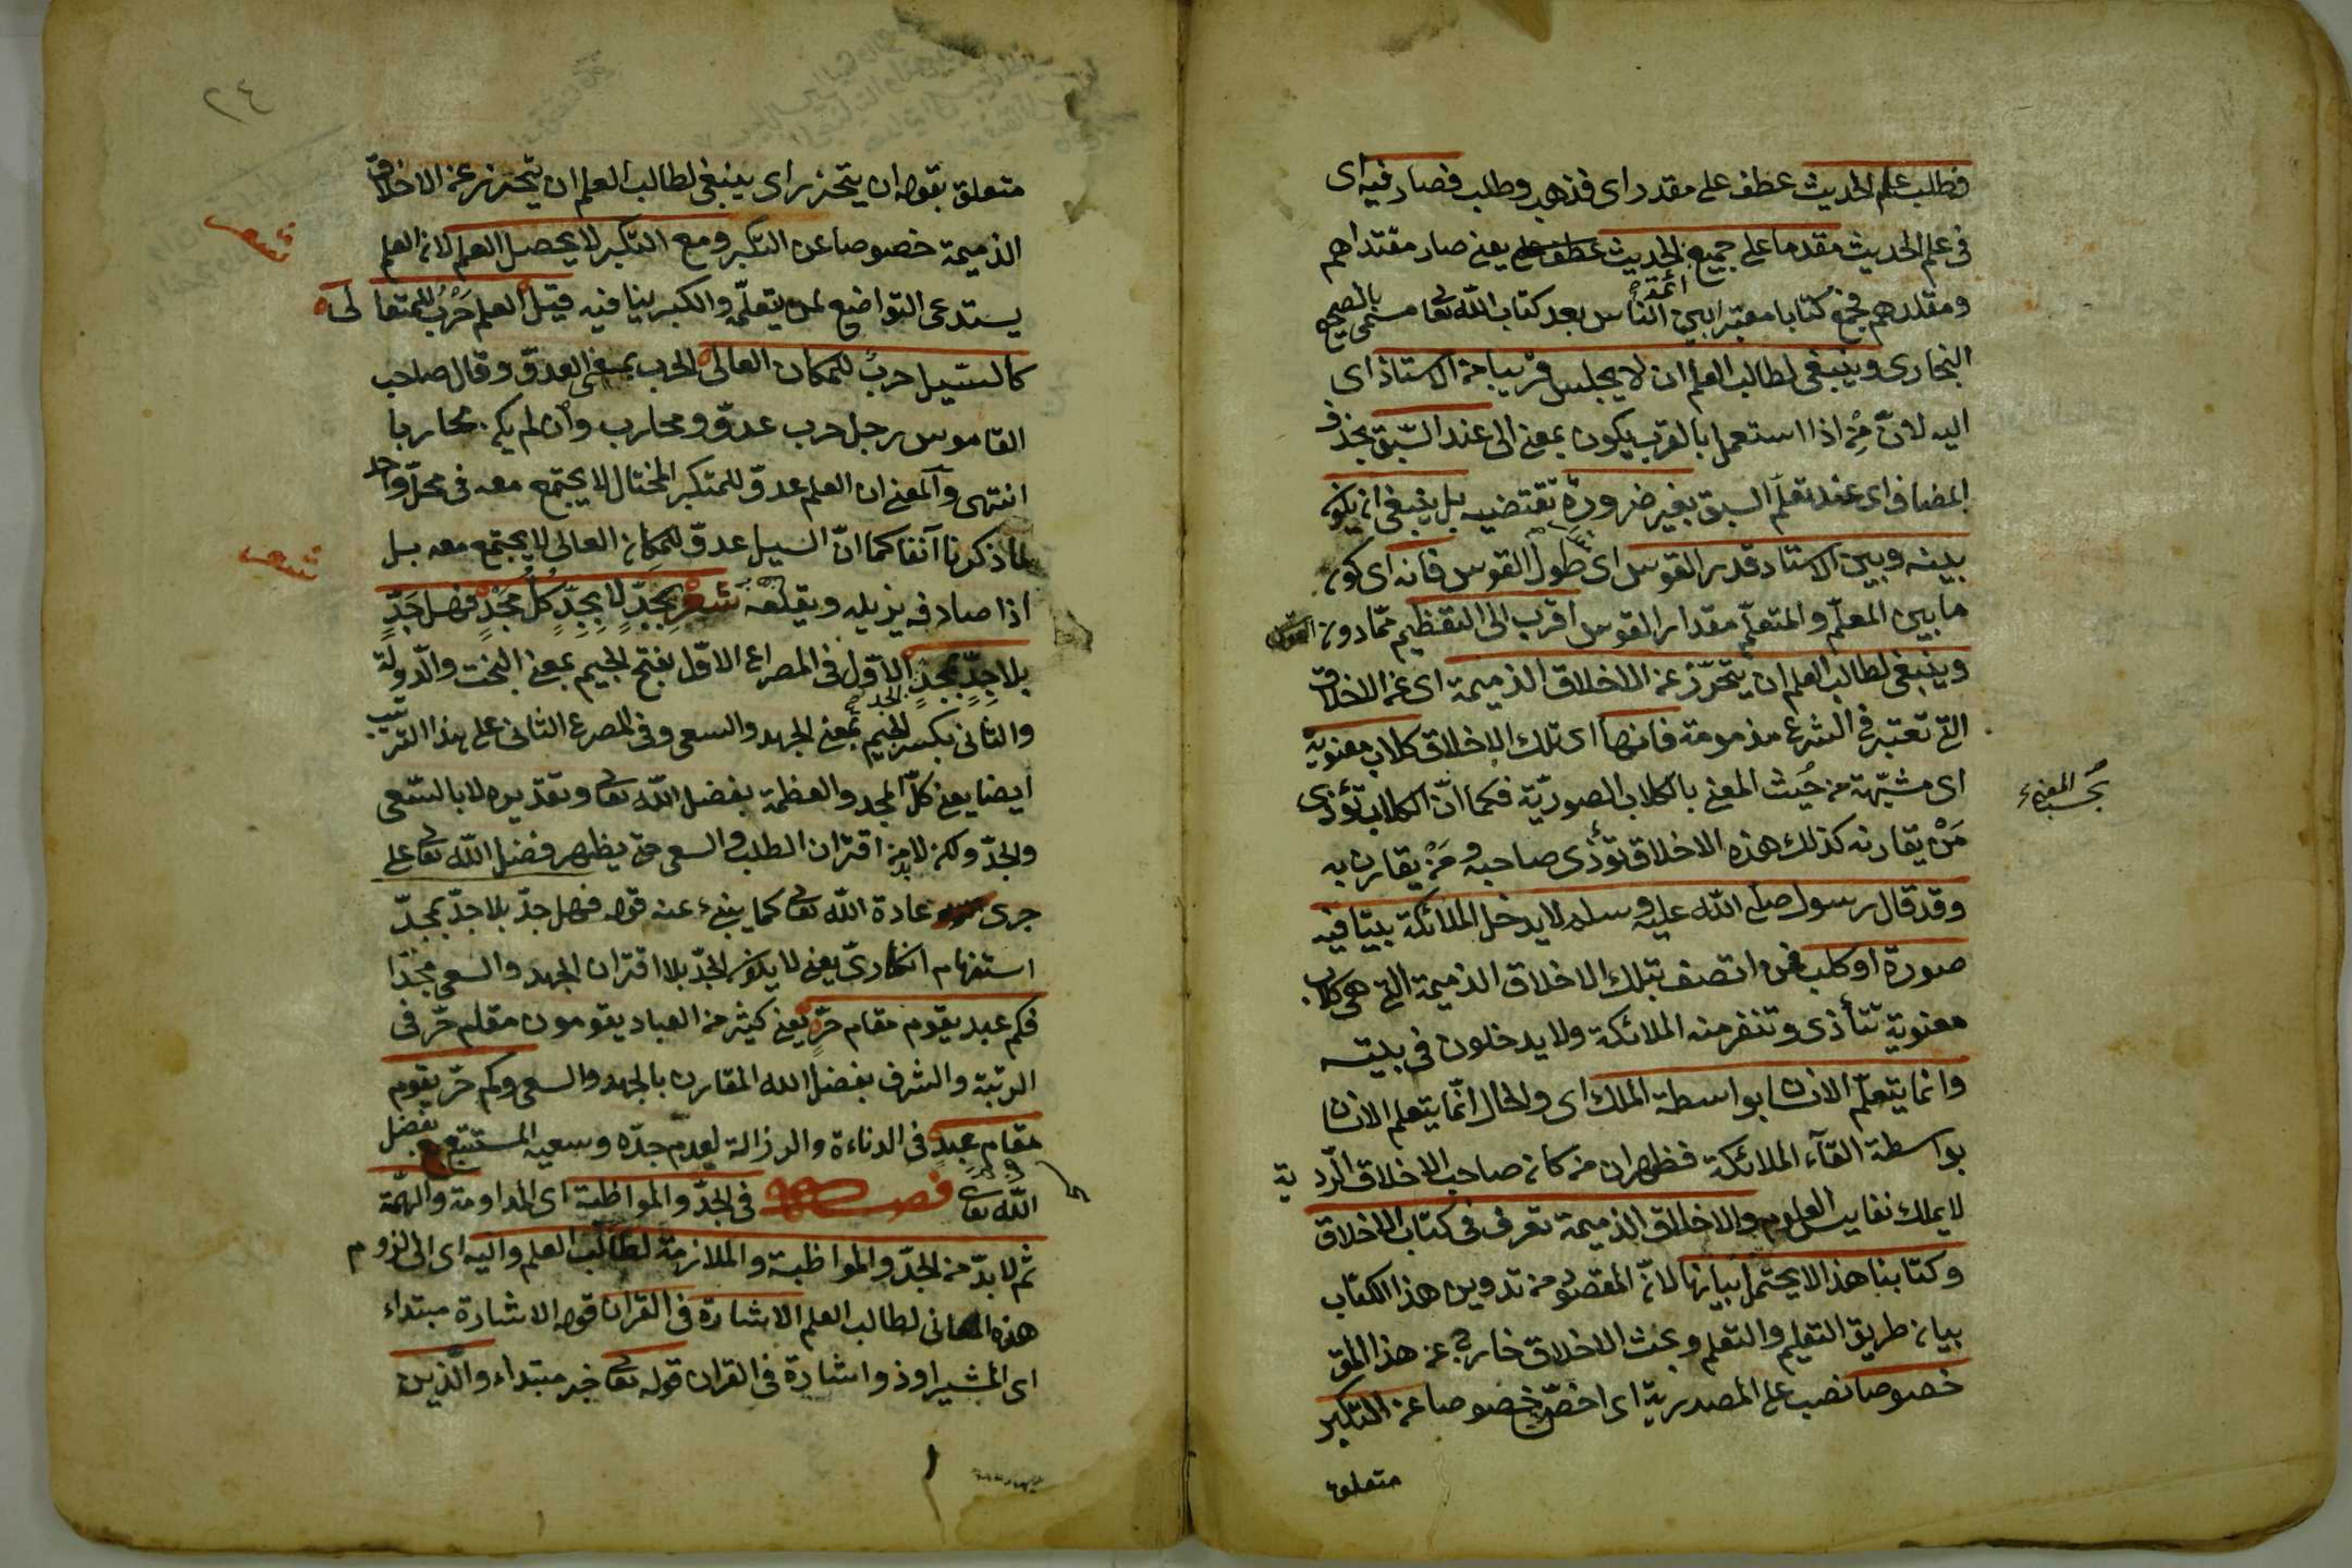 فطلب علم الحديث عطف على مقدر اى فذهب وطلب فصار فيه اى
فى علم الحديث مقدما على جميع ائمة الحديث يعنى صار مقتداهم
ومقلدهم فجمع كتابا معتبرا بين الناس بعد كتاب الله تعا مسمى بالصحيح
البخارى وينبغى لطالب العلم ان لا يجلس قريبا من الاستاذ اى
اليه لانّ مِنْ اذا استعمل بالقرب يكون بمعنى الى عند السّبق بحذف
المضاف اى عند تعلّم السبق بغير ضرورة تقتضيه بل ينبغى ان يكون
بينه وبين الاستاد قدر القوس اى طول القوس فانه اى كون
ما بين المعلّم والمتعلّم مقدار القوس اقرب الى التعظيم ممّا دون القوس
وينبغى لطالب العلم ان يتحرّز عن الاخلاق الذميمة اى عن الاخلاق
التى تعتبر فى الشرع مذمومة فانها اى تلك الاخلاق كلاب معنوية
اى مشبّهة من حيث المعنى بالكلاب الصوريّة فكما انّ الكلاب تؤذى
بحسب المعنى
مَنْ يقارنه كذلك هذه الاخلاق تؤذى صاحبه ومَنْ يقارن به
وقد قال رسول صلى الله عليه وسلم لا يدخل الملائكة بيتا فيه
صورة او كلب فمن اتصف بتلك الاخلاق الذميمة التى هى كلاب
معنوية تتأذى وتنفر منه الملائكة ولا يدخلون فى بيته
وانما يتعلّم الانسان بواسطة الملك اى والحال انّما يتعلم الانسان
بواسطة القآء الملائكة فظهر ان من كان صاحب الاخلاق الرّدية
لا يملك نفايس العلوم والاخلاق الذميمة تعرف فى كتاب الاخلاق
وكتابنا هذا لا يحتمل بيانها لانّ المقصود من تدوين هذا الكتاب
بيان طريق التعليم والتعلم وبحث الاخلاق خارج عن هذا المق
خصوصا نصب على المصدرية اى اخصّ خصوصا عن التكبر
متعلق
٢٤
متعلق بقوله ان يتحرز اى ينبغى لطالب العلم ان يتحرز عن الاخلاق
الذميمة خصوصا عن التكبر ومع التكبر لا يحصل العلم لان العلم
شعر
يستدعى التواضع لمن يتعلّمه والكبر ينافيه قيل العلم حَرْبٌ للمتعالى
كالسّيل حربٌ للمكان العالى الحرب بمعنى العدوّ وقال صاحب
القاموس رجل حرب عدوّ ومحارب وان لم يكن محاربا
انتهى والمعنى ان العلم عدوّ للمتكبر المختال لا يجتمع معه فى محلّ واحد
لما ذكرنا آنفا كما انّ السيل عدوّ للمكان العالى لا يجتمع معه بل
شعر
اذا صادفه يزيله ويقلعه شعر بِجَدٍّ لا بِجِدٍّ كُلُّ مَجْدٍ فهل جَدّ
بلا جِدٍّ بمجدٍ الجد الاوّل فى المصراع الاوّل بفتح الجيم بمعنى البخت والدّولة
والثانى بكسر الجيم بمعنى الجهد والسعى وفى المصرع الثانى على هذا الترتيب
ايضا يعنى كلّ المجد والعظمة بفضل الله تعا وتقديره لا بالسّعى
والجدّ ولكن لا بد من اقتران الطلب والسعى حتى يظهر فضل الله تعا على
جرى عادة الله تعا كما ينبئ عنه قوله فهل جدّ بلا جدّ بمجدّ
استفهام انكارىّ يعنى لا يكون الجدّ بلا اقتران الجهد والسعى مجدّا
فكم عبد يقوم مقام حرّ يعنى كثير من العباد يقومون مقام حرّ فى
الرتبة والشرف بفضل الله المقارن بالجهد والسعى وكم حرّ يقوم
مقام عبد فى الدناءة والرزالة لعدم جدّه وسعيه المستتبع بفضل
الله تعا فصل فى الجدّ والمواظبة اى المداومة والهمّة
ثم لا بدّ من الجدّ والمواظبة والملازمة لطالب العلم واليه اى الى لزوم
هذه المعانى لطالب العلم الاشارة فى القران قوله الاشارة مبتداء
اى المشير او ذو اشارة فى القران قوله تعا خبر مبتداء والّذين